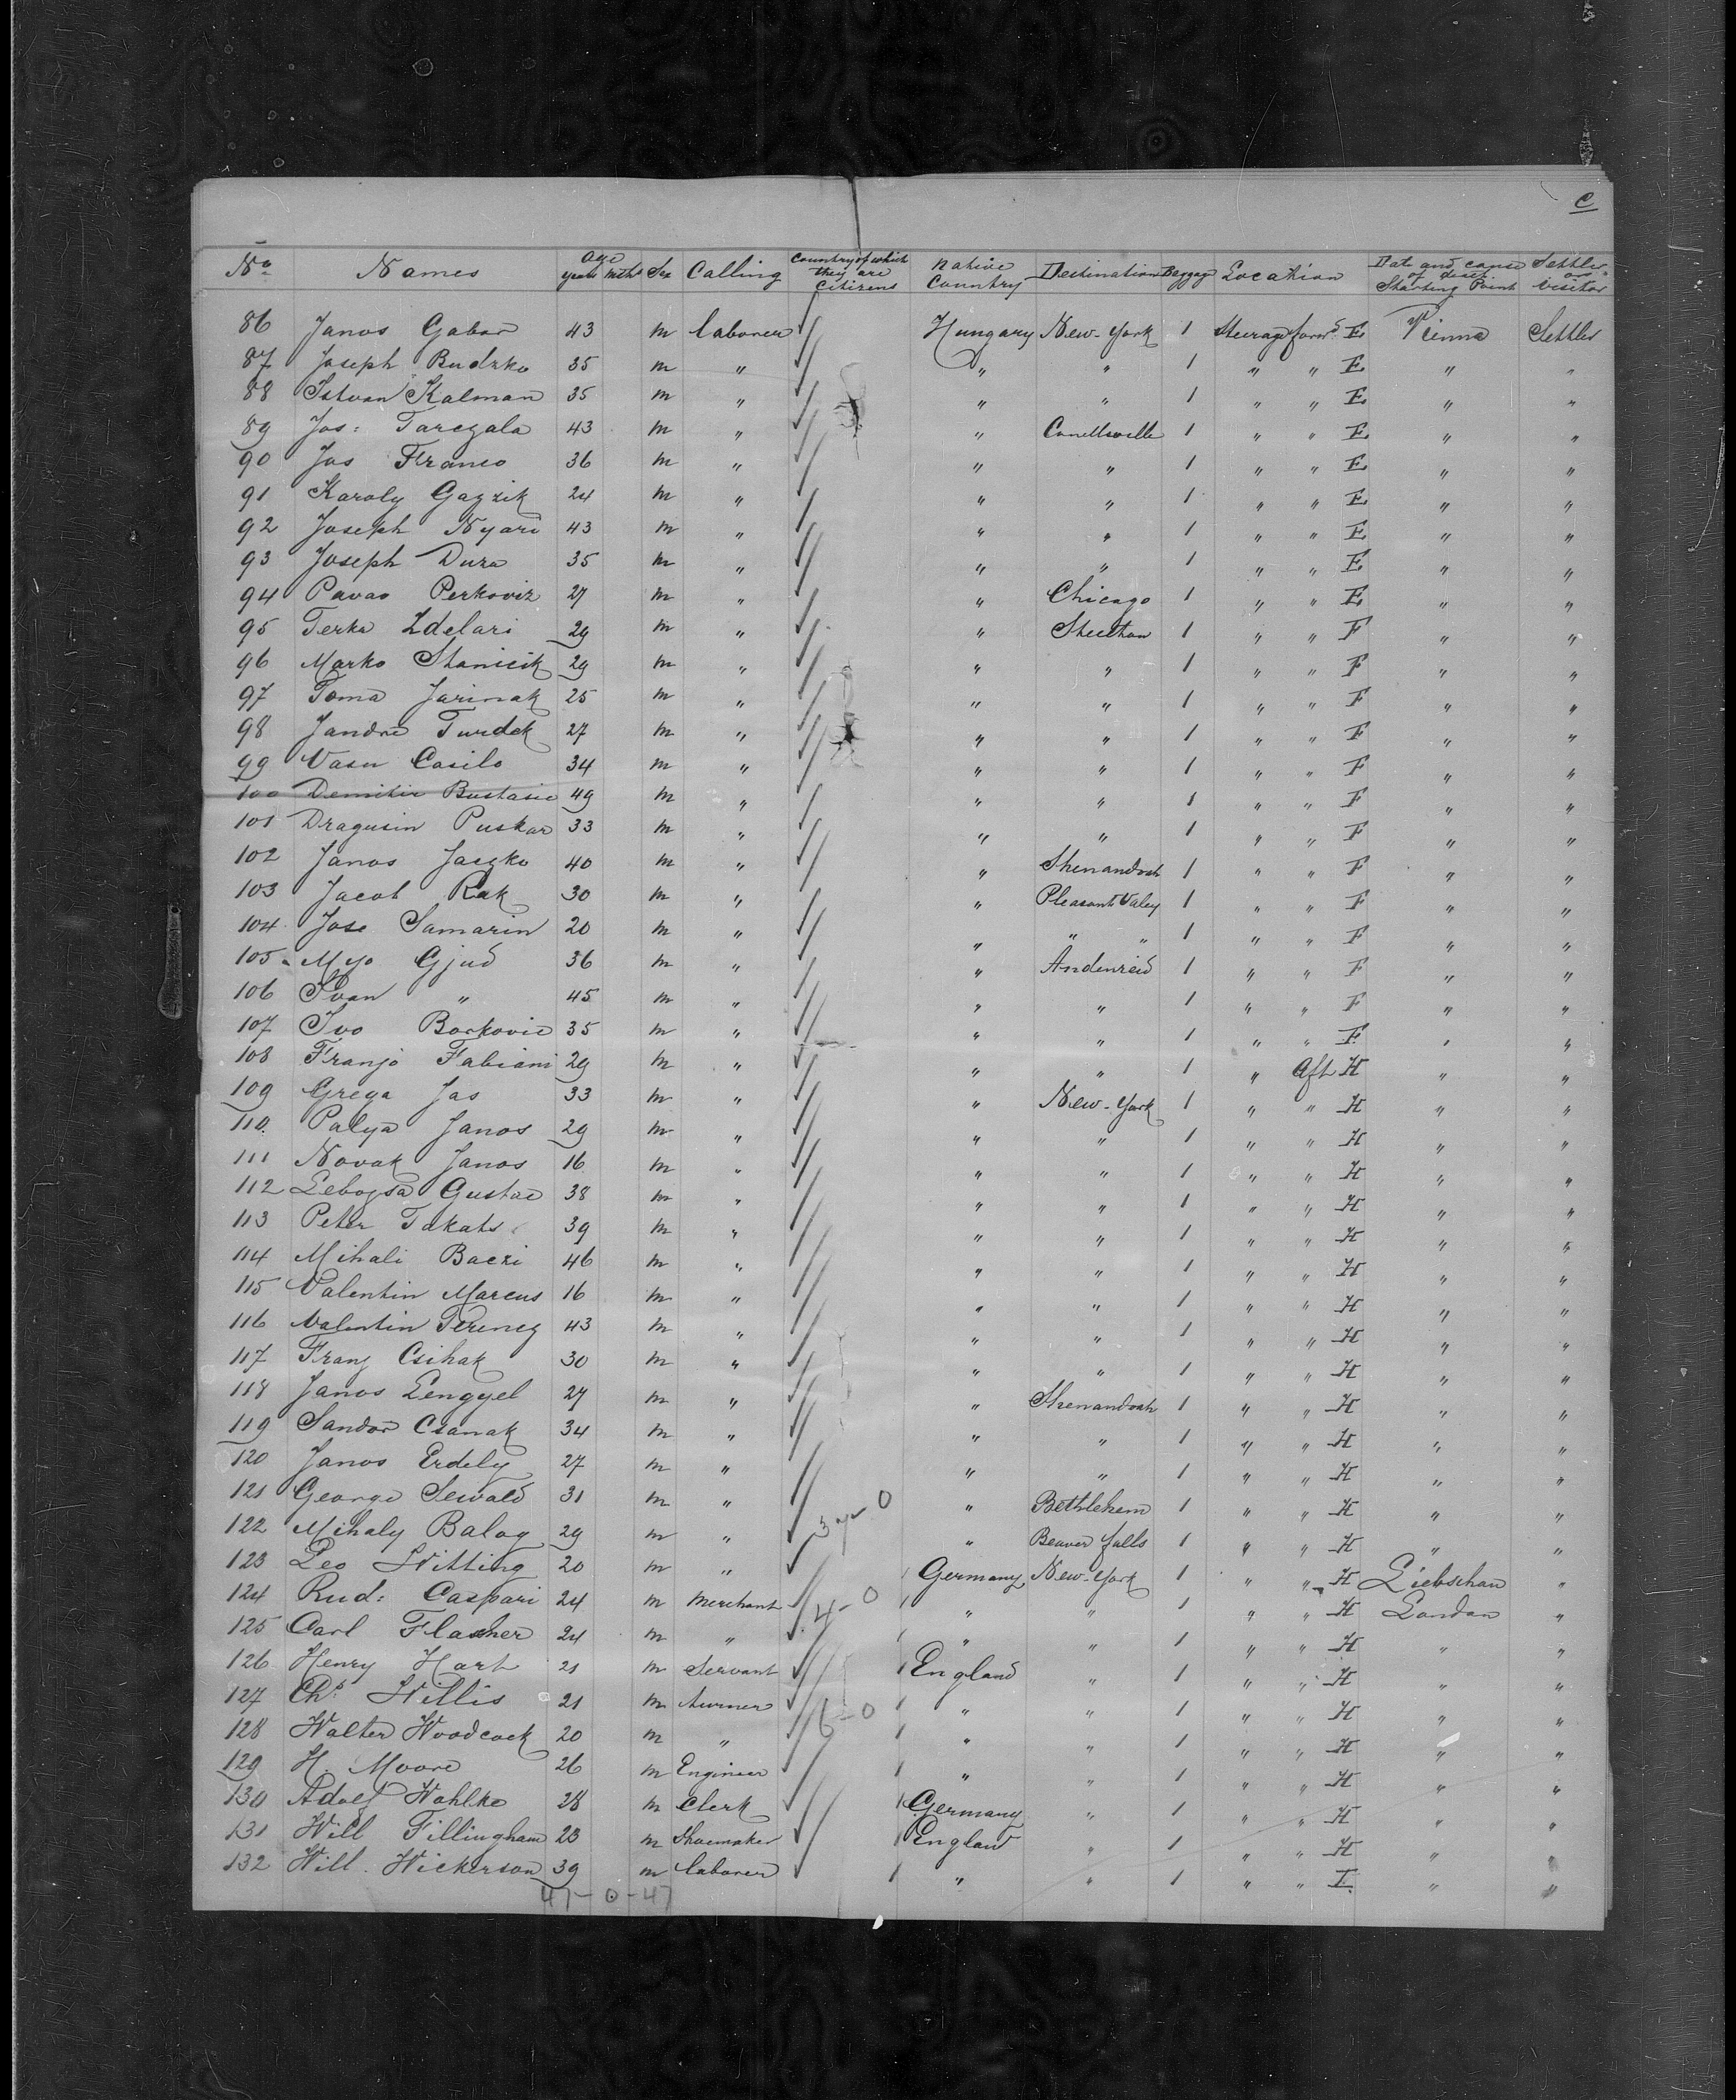 C
No Names age years mths Sex Calling Country of which they are Citizens Native Country Destination Baggage Location Date and cause of death Starting Point Settler or Visitor
86 Janos Gabor 43 m laborer Hungary New-York 1 Steerage forwd E Vienna Settler
87 Joseph Budzko 35 m " " " 1 " " E " "
88 Istvan Kalman 35 m " " " 1 " " E " "
89 Jos: Tarczala 43 m " " Conellsville 1 " " E " "
90 Jos Franco 36 m " " " 1 " " E " "
91 Karoly Gazzik 24 m " " " 1 " " E " "
92 Joseph Nyari 43 m " " " 1 " " E " "
93 Joseph Dura 35 m " " " 1 " " E " "
94 Pavao Perkoviz 27 m " " Chicago 1 " " E " "
95 Terka Zdelari 29 m " " Steelton 1 " " F " "
96 Marko Stanicik 29 m " " " 1 " " F " "
97 Toma Jarinak 25 m " " " 1 " " F " "
98 Jandre Turdek 27 m " " " 1 " " F " "
99 Vasu Casilo 34 m " " " 1 " " F " "
100 Demitir Bustasic 49 m " " " 1 " " F " "
101 Dragusin Puskar 33 m " " " 1 " " F " "
102 Janos Jaszko 40 m " " Shenandoah 1 " " F " "
103 Jacob Rak 30 m " " Pleasant Valey 1 " " F " "
104 Jose Samarin 20 m " " " " 1 " " F " "
105 Myo Gjud 36 m " " Andenried 1 " " F " "
106 Ivan " 45 m " " " 1 " " F " "
107 Ivo Borkovic 35 m " " " 1 " " F " "
108 Franjo Fabiani 29 m " " " 1 " Aft H " "
109 Grega Jas 33 m " " New-York 1 " " H " "
110. Palya Janos 29 m " " " 1 " " H " "
111 Novak Janos 16 m " " " 1 " " H " "
112 Lebogsa Gustav 38 m " " " 1 " " H " "
113 Peter Takats 39 m " " " 1 " " H " "
114 Mihali Baczi 46 m " " " 1 " " H " "
115 Valentin Marcus 16 m " " " 1 " " H " "
116 Valentin Ferencz 43 m " " " 1 " " H " "
117 Franz Csihak 30 m " " " 1 " " H " "
118 Janos Lengyel 27 m " " Shenandoah 1 " " H " "
119 Sandor Csanak 34 m " " " 1 " " H " "
120 Janos Erdely 27 m " " " 1 " " H " "
121 George Sewald 31 m " " Bethlehem 1 " " H " "
122 Mihaly Balog 29 m " " Beaver falls 1 " " H " "
123 Leo Witting 20 m " Germany New-York 1 " " H Liebschau "
124 Rud: Caspari 24 m Merchant 4-0 " " 1 " " H London "
125 Carl Flasher 24 m " " " 1 " " H " "
126 Henry Hart 21 m Servant England " 1 " " H " "
127 Chs. Willis 21 m turner 6-0 " " 1 " " H " "
128 Walter Woodcock 20 m " " " 1 " " H " "
129 H. Moore 26 m Engineer " " 1 " " H " "
130 Adolf Wahlke 28 m Clerk Germany " 1 " " H " "
131 Will Fillingham 23 m Shoemaker England " 1 " " H " "
132 Will. Wickerson 39 m laborer " " 1 " " I " "
47-0-47